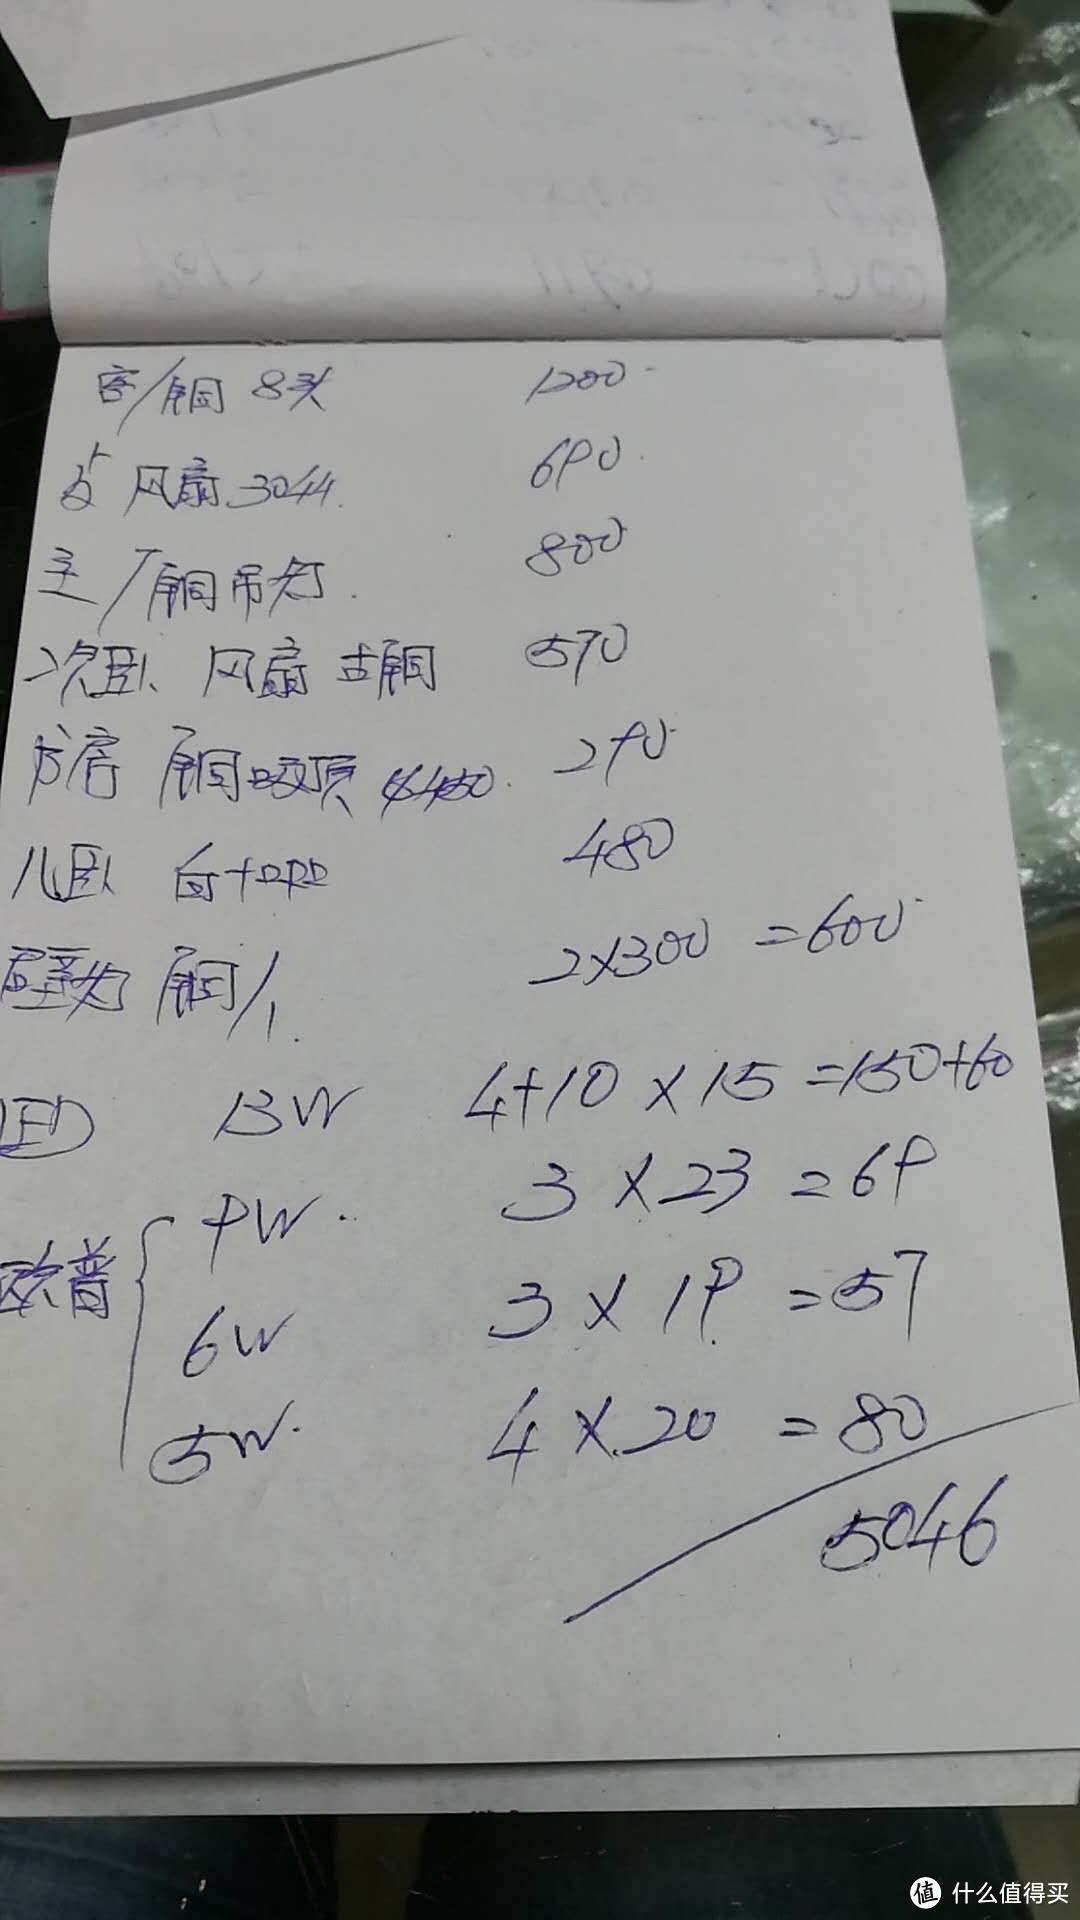 客/铜 8头 1200
风扇 3044. 690.
主/铜吊灯. 800
次卧 风扇 古铜 570
书房 铜吸顶 290
儿卧 白 480
壁灯 铜/1. 2×300=600
LED 13W 4+10×15=150+60
欧普 9W. 3×23=69
6W 3×19=57
5W. 4×20=80
5046
值 什么值得买